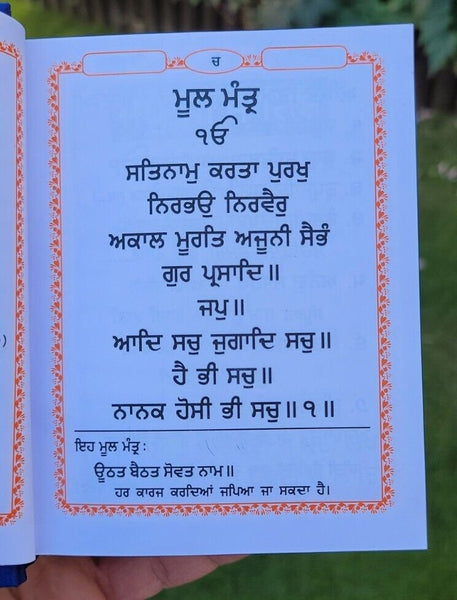 ਚ
ਮੂਲ ਮੰਤ੍ਰ
ੴ
ਸਤਿਨਾਮੁ ਕਰਤਾ ਪੁਰਖੁ
ਨਿਰਭਉ ਨਿਰਵੈਰੁ
ਅਕਾਲ ਮੂਰਤਿ ਅਜੂਨੀ ਸੈਭੰ
ਗੁਰ ਪ੍ਰਸਾਦਿ॥
ਜਪੁ॥
ਆਦਿ ਸਚੁ ਜੁਗਾਦਿ ਸਚੁ॥
ਹੈ ਭੀ ਸਚੁ॥
ਨਾਨਕ ਹੋਸੀ ਭੀ ਸਚੁ॥੧॥
ਇਹ ਮੂਲ ਮੰਤ੍ਰ:
ਊਠਤ ਬੈਠਤ ਸੋਵਤ ਨਾਮ॥
ਹਰ ਕਾਰਜ ਕਰਦਿਆਂ ਜਪਿਆ ਜਾ ਸਕਦਾ ਹੈ।